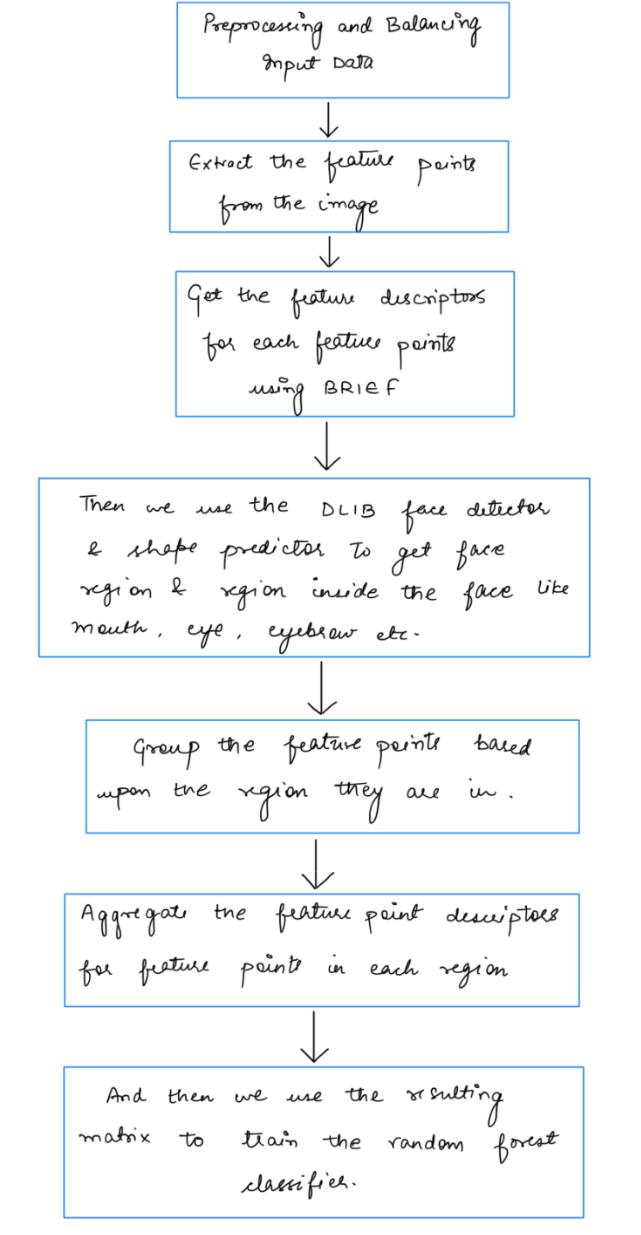 Preprocessing and Balancing
Input Data
Extract the feature points
from the image
Get the feature descriptors
for each feature points
using BRIEF
Then we use the DLIB face detector
& shape predictor To get face
region & region inside the face like
mouth, eye, eyebrow etc.
Group the feature points based
upon the region they are in.
Aggregate the feature point descriptors
for feature points in each region
And then we use the resulting
matrix to train the random forest
classifier.